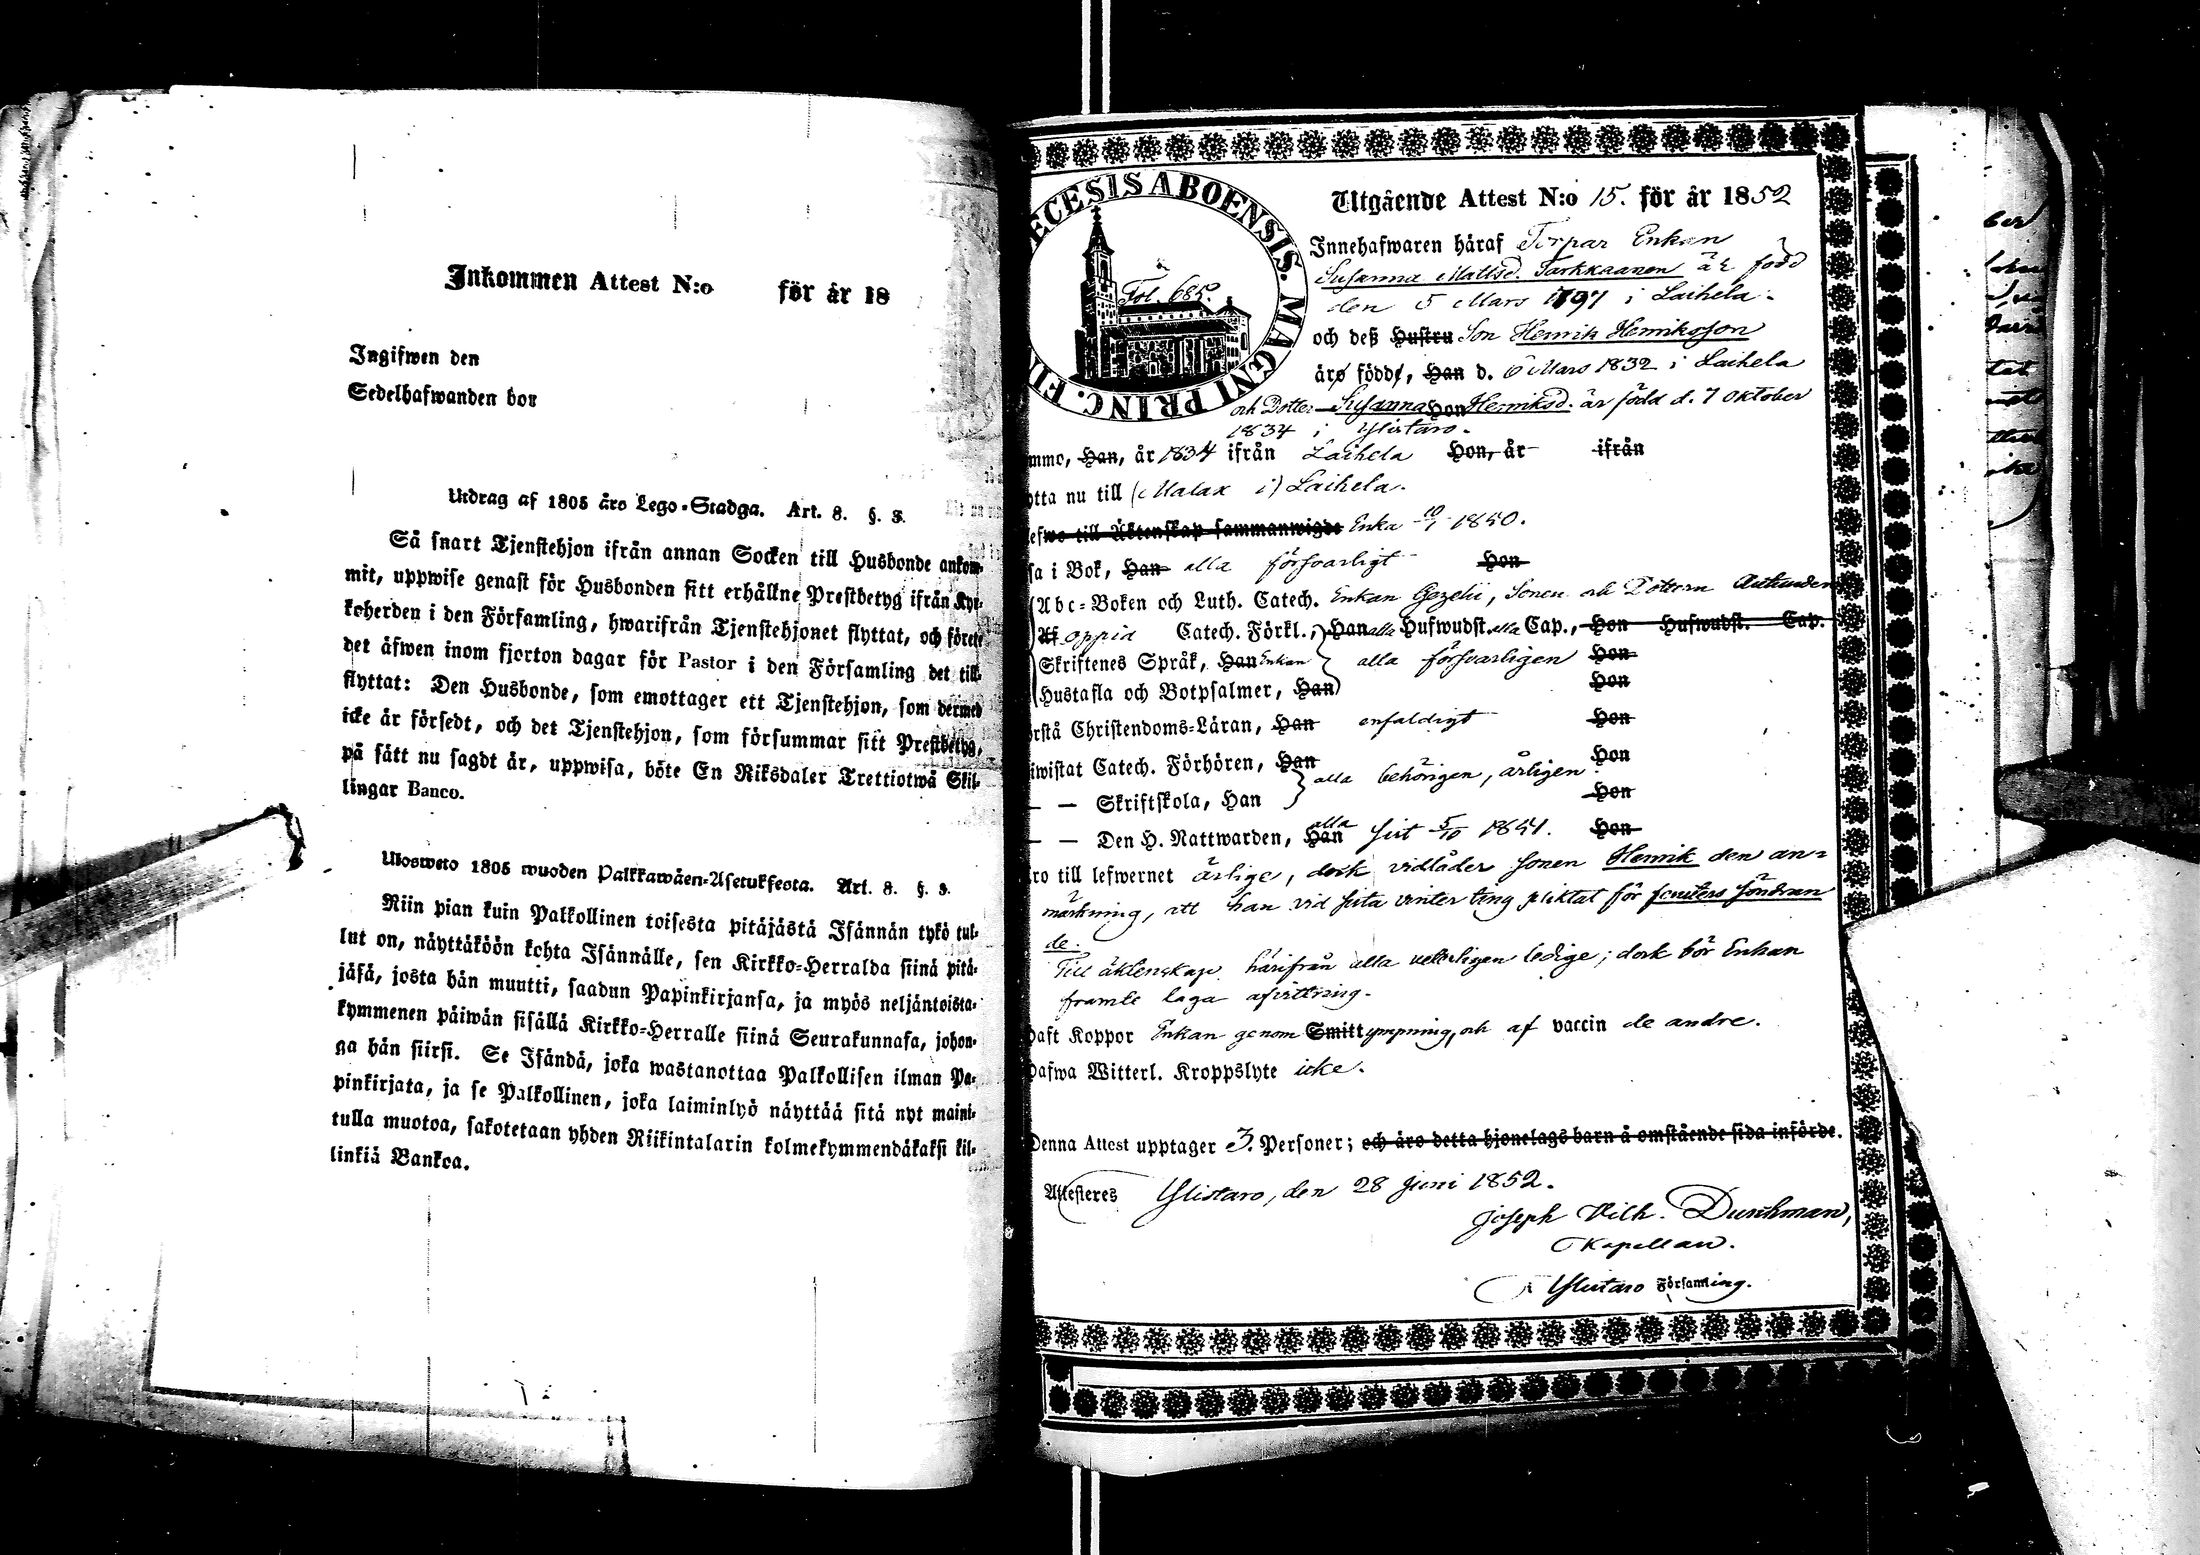 Inkommen Attest N:o för år 18
Ingifwen den
Sedelhafwanden bor
Utdrag af 1805 års Lego-Stadga. Art. 8. §. 3.
Så snart Tjenstehjon ifrån annan Socken till Husbonde ankom-
mit, uppwise genast för Husbonden sitt erhållne Prestbetyg ifrån Kyr-
koherden i den Församling, hwarifrån Tjenstehjonet flyttat, och förete
det äfwen inom fjorton dagar för Pastor i den Församling det till-
flyttat: Den Husbonde, som emottager ett Tjenstehjon, som dermed
icke är försedt, och det Tjenstehjon, som försummar sitt Prestbetyg,
på sätt nu sagdt är, uppwisa, böte En Riksdaler Trettiotwå Skil-
lingar Banco.
Ulosweto 1805 wuoden Palkkawäen-Asetuksesta. Art. 8. §. 3.
Niin pian kuin Palkollinen toisesta pitäjästä Isännän tykö tul-
lut on, näyttäköön kohta Isännälle, sen Kirkko-Herralda siinä pitä-
jäsä, josta hän muutti, saadun Papinkirjansa, ja myös neljäntoista-
kymmenen päiwän sisällä Kirkko-Herralle siinä Seurakunnasa, johon-
ga hän siirsi. Se Isändä, joka wastanottaa Palkollisen ilman Pa-
pinkirjata, ja se Palkollinen, joka laiminlyö näyttää sitä nyt maini-
tulla muotoa, sakotetaan yhden Riikintalarin kolmekymmendäkaksi kil-
linkiä Bankoa.
ECESIS ABOENSIS. MAGNI PRINC. FIN
Fol. 685.
Utgående Attest N:o 15. för år 1852
Innehafwaren häraf Torpar Enkan
Susanna Mattsd. Sarkkaanen är född
den 5 Mars 1797 i Laihela.
och deß Hustru Son Henrik Henriksson
äro födde, Han d. 6 Mars 1832 i Laihela
och Dotter Susanna Hon Henriksd. är född d. 7 oktober
1834 i Ylistaro.
mmo, Han, år 1834 ifrån Laihela Hon, år ifrån
otta nu till (Malax i) Laihela.
efwo till Äktenskap sammanwigde Enka 10/1 1850.
sa i Bok, Han alla försvarligt Hon
Abc-Boken och Luth. Catech. Enkan Gezelii, Sonen och Dottern
Af oppid Catech. Förkl., Han alla Hufwudst. alla Cap., Hon Hufwudst. Cap.
Skriftenes Språk, Han Enkan alla försvarligen Hon
Hustafla och Botpsalmer, Han Hon
örstå Christendoms-Läran, Han enfaldigt Hon
iwistat Catech. Förhören, Han alla behörigen, årligen Hon
— — Skriftskola, Han Hon
— — Den H. Nattwarden, Han alla sist 5/10 1851. Hon
ro till lefwernet ärlige, dock vidlåder sonen Henrik den an-
märkning, att han vid sista vinter ting pliktat för fönsters söndran
de.
Till äktenskap härifrån alla vetterligen ledige; dock bör Enkan
framte laga afvittring.
haft Koppor Enkan genom Smitt ympning, och af vaccin de andre.
hafwa Witterl. Kroppslyte icke.
Denna Attest upptager 3. Personer; och äro detta hjonelags barn å omstående sida införde.
Attesteres Ylistaro, den 28 Juni 1852.
Joseph Vilh. Durchman,
Kapellan.
i Ylistaro Församling.